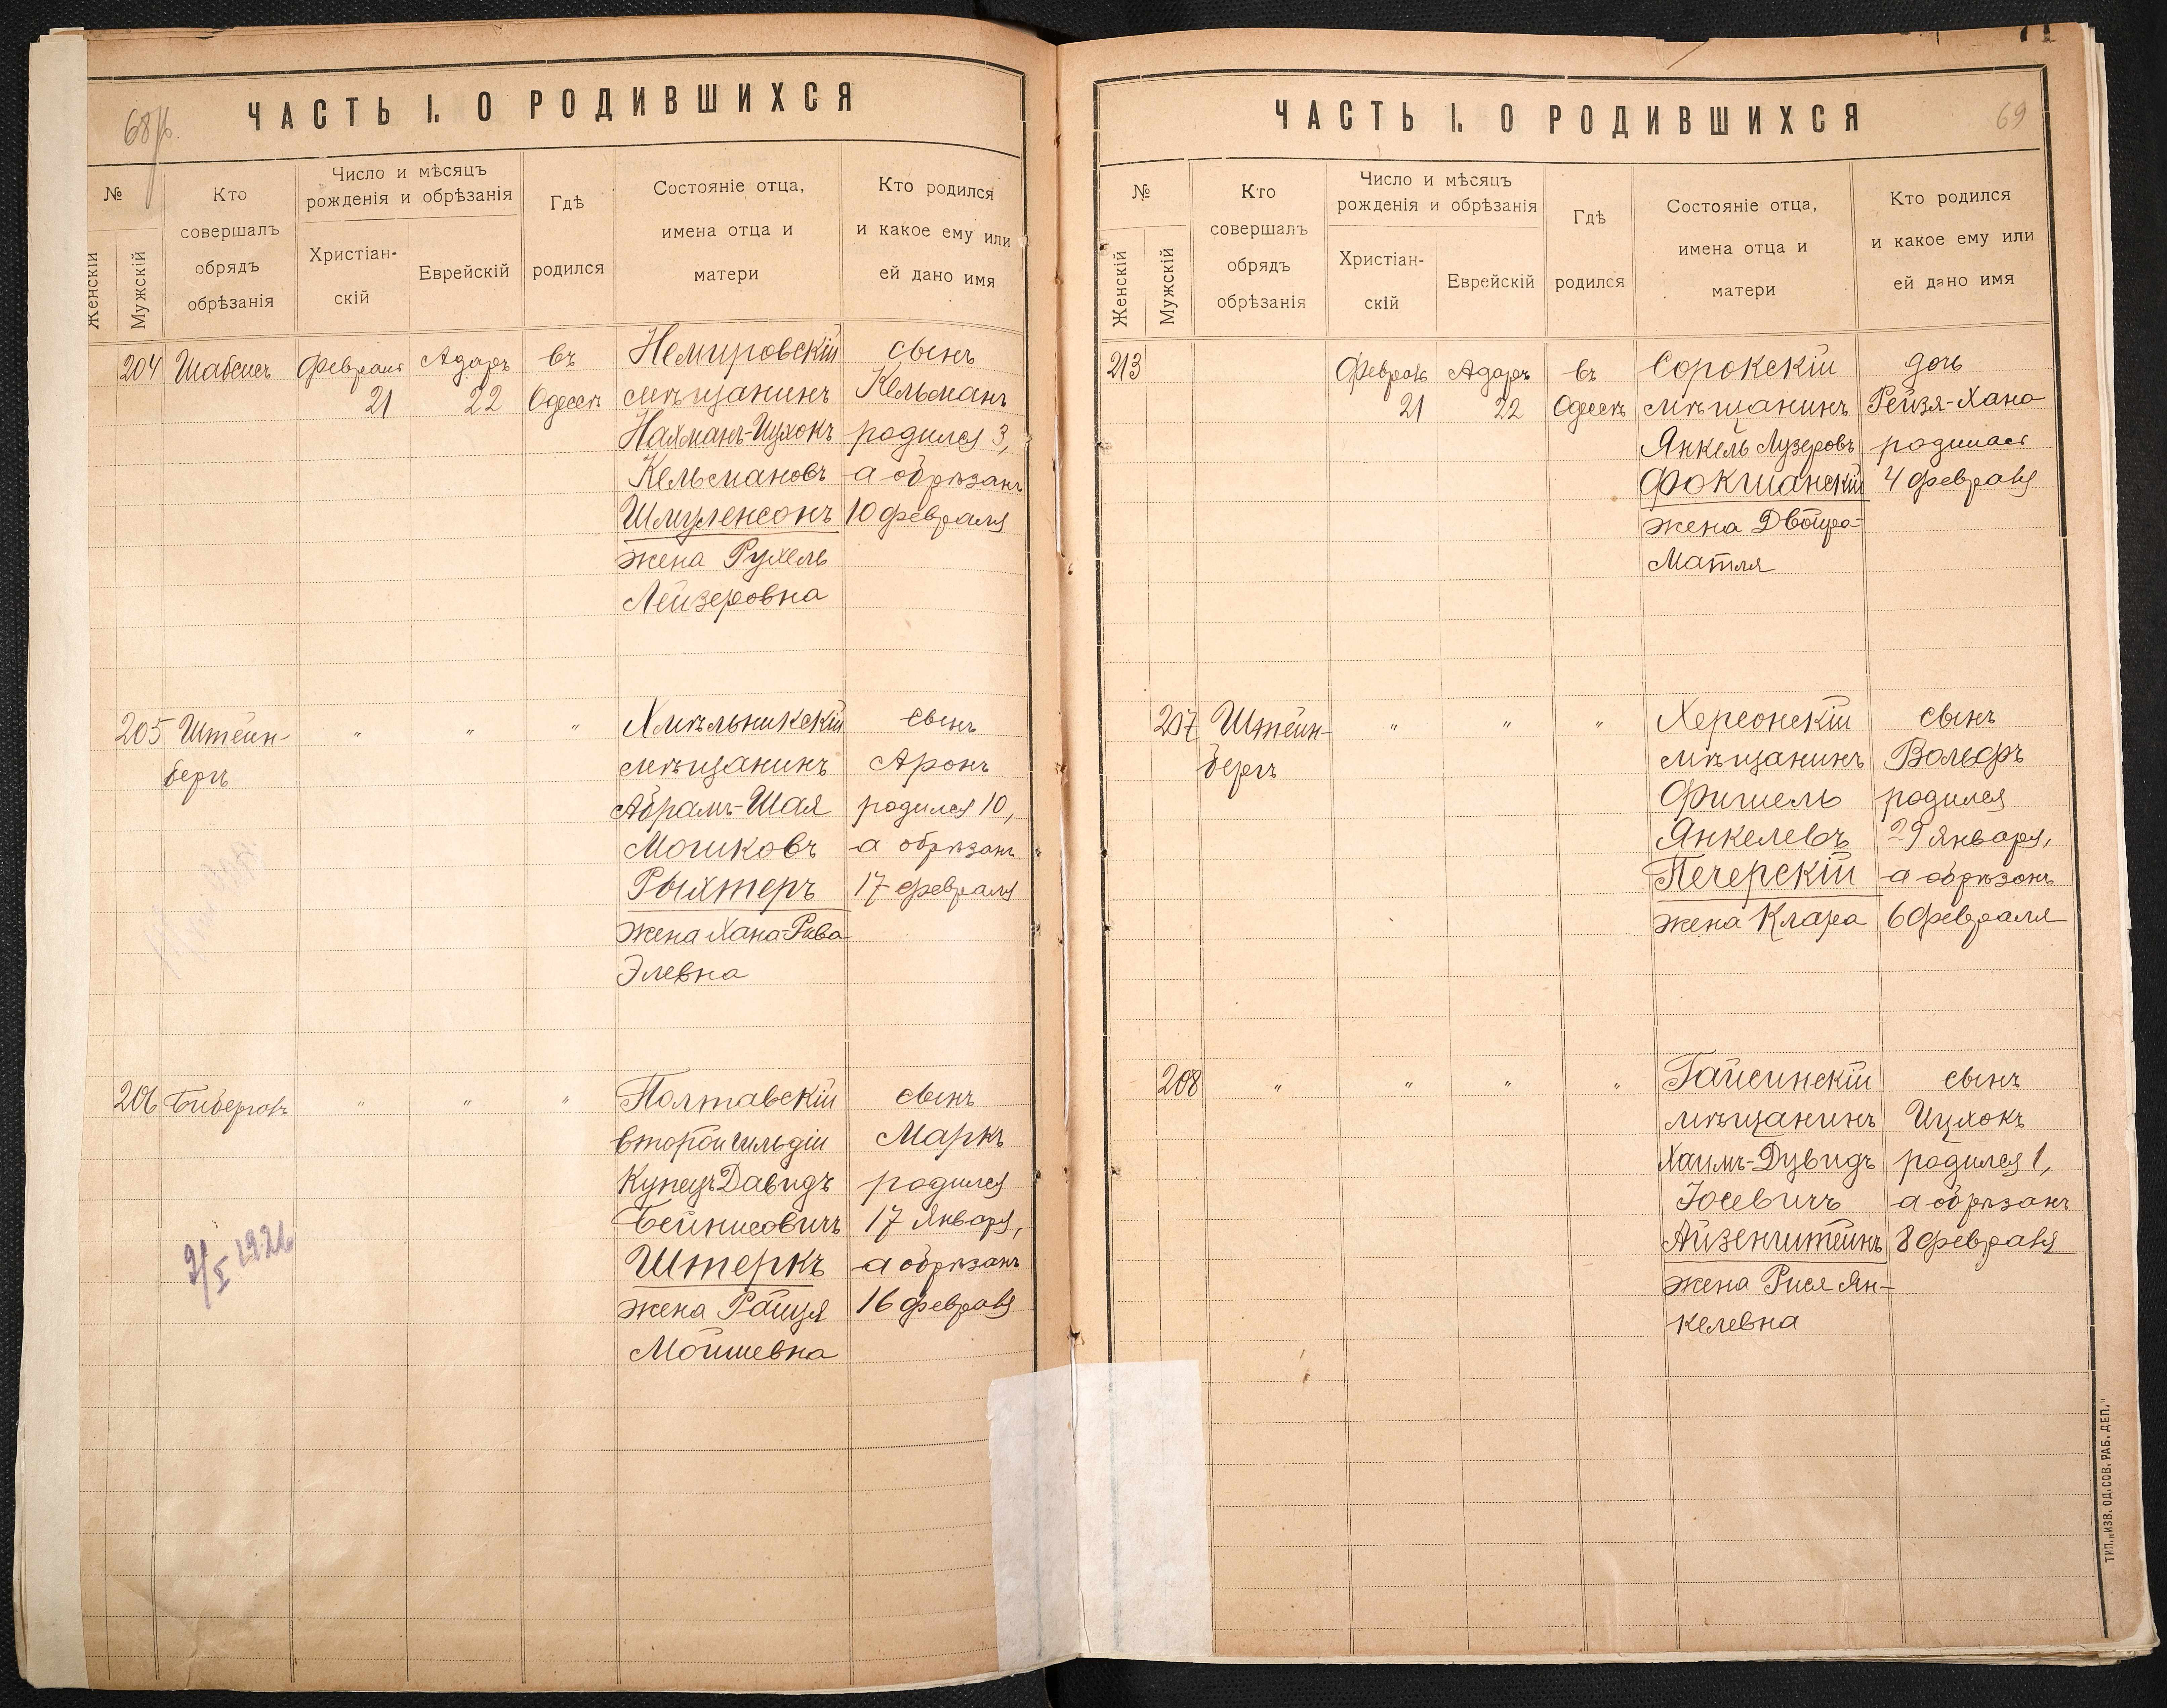 68 об.
ЧАСТЬ I. О РОДИВШИХСЯ
№
Женскій
Мужскій
Кто
совершалъ
обрядъ
обрѣзанія
Число и мѣсяцъ
рожденія и обрѣзанія
Христіан-
скій
Еврейскій
Гдѣ
родился
Состояніе отца,
имена отца и
матери
Кто родился
и какое ему или
ей дано имя
204 Шабсисъ Февраля Адаръ въ Немировскій сынъ
21 22 Одессѣ мѣщанинъ Кельманъ
Нахманъ-Ицхокъ родился 3,
Кельмановъ а обрѣзанъ
Шмуленсонъ 10 февраля
жена Рухель
Лейзеровна
205 Штейн- " " " Хмѣльникскій сынъ
бергъ мѣщанинъ Аронъ
Абрамъ-Шая родился 10,
Мошковъ а обрѣзанъ
Рыхтеръ 17 февраля
жена Хана-Рива
Элевна
206 Биберовъ " " " Полтавскій сынъ
второй гильдіи Маркъ
Купецъ Давидъ родился
Бейнисовичъ 17 Января,
Штеркъ а обрѣзанъ
жена Раиця 16 февраля
Мойшевна
9/I 1921
69
ЧАСТЬ I. О РОДИВШИХСЯ
№
Женскій
Мужскій
Кто
совершалъ
обрядъ
обрѣзанія
Число и мѣсяцъ
рожденія и обрѣзанія
Христіан-
скій
Еврейскій
Гдѣ
родился
Состояніе отца,
имена отца и
матери
Кто родился
и какое ему или
ей дано имя
213 Февраль Адаръ въ Сорокскій дочь
21 22 Одессѣ мѣщанинъ Рейзя-Хана
Янкель Лузеровъ родилась
Фокшанскій 4 февраля
жена Двойра-
Матля
207 Штейн- " " " Херсонскій сынъ
бергъ мѣщанинъ Вольфъ
Фишель родился
Янкелевъ 29 Января,
Печерскій а обрѣзанъ
жена Клара 6 февраля
208 " " " " Гайсинскій сынъ
мѣщанинъ Ицхокъ
Хаимъ-Дувидъ родился 1,
Юсевичъ а обрѣзанъ
Айзенштейнъ 8 февраля
жена Рися Ян-
келевна
ТИП. „ИЗВ. ОД. СОВ. РАБ. ДЕП."